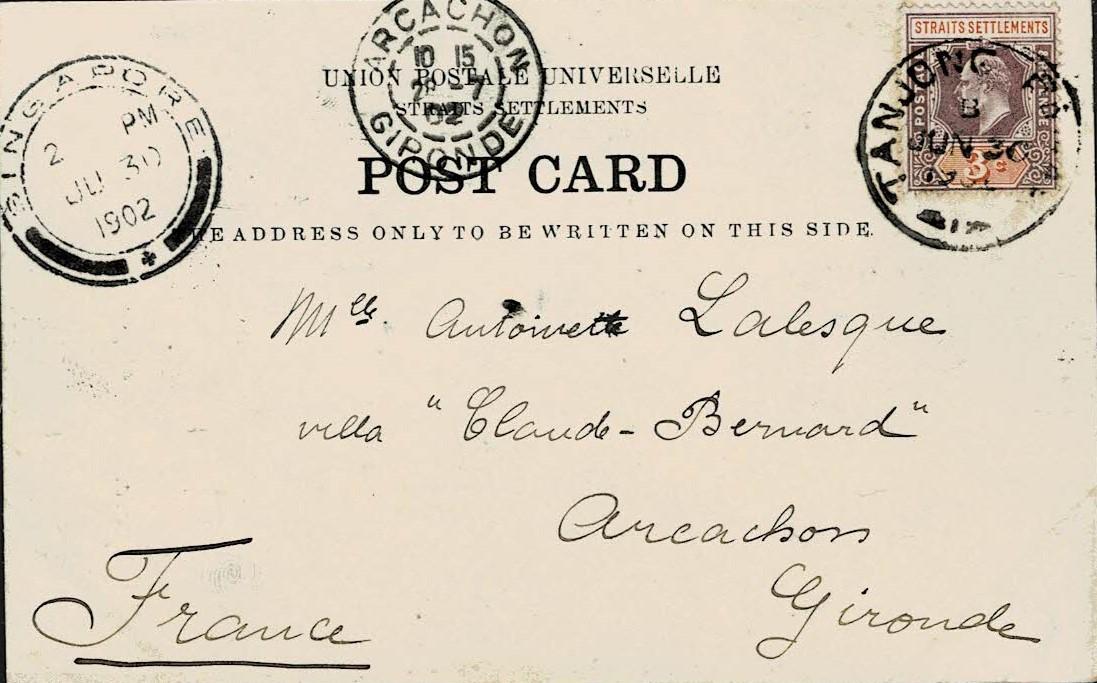 STRAITS SETTLEMENTS
POSTAGE
3c
TANJONG
B
JUN 30
ARCACHON
10 15
02
GIRONDE
SINGAPORE
2 PM
JU 30
1902
UNION POSTALE UNIVERSELLE
STRAITS SETTLEMENTS
POST CARD
THE ADDRESS ONLY TO BE WRITTEN ON THIS SIDE.
Mlle. Antoinette Lalesque
villa "Claude-Bernard"
Arcachon
Gironde
France